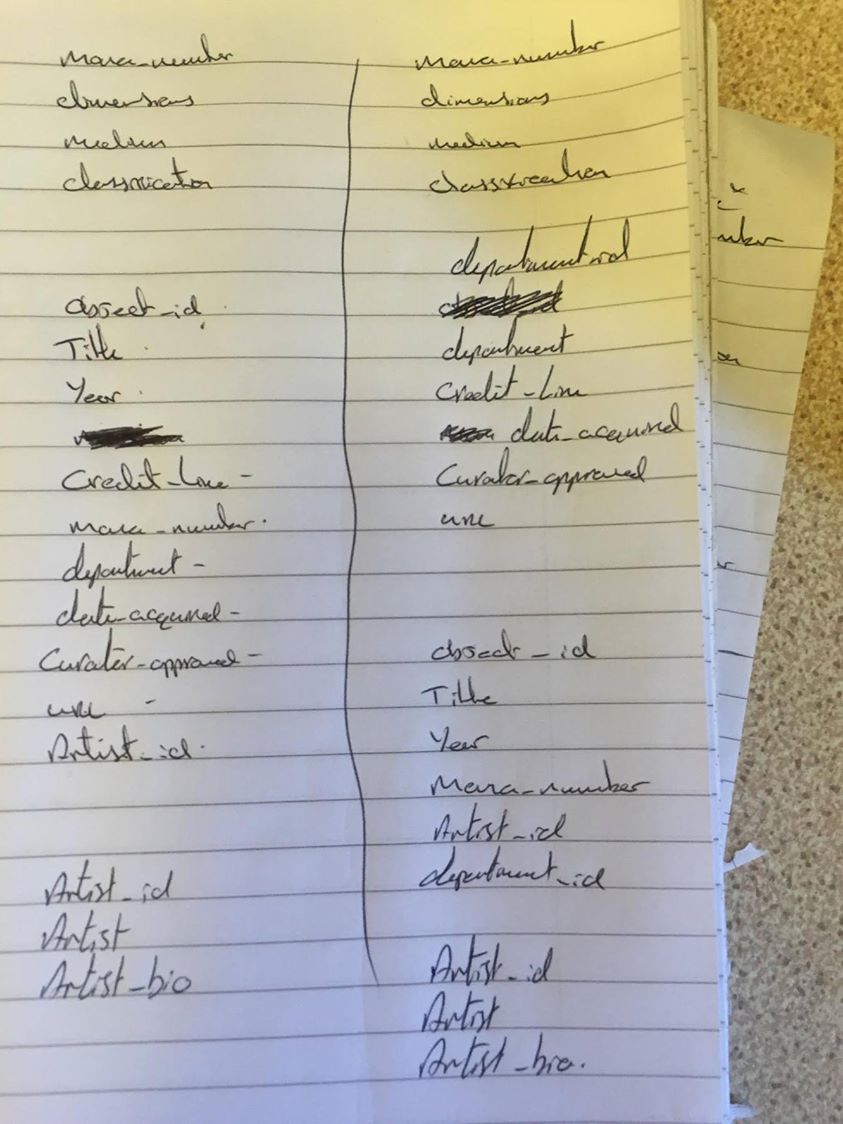 moma_number
dimensions
medium
classification
object_id
Title
Year
Credit_line -
moma_number.
department -
date_acquired -
Curator_approved -
url -
Artist_id.
Artist_id
Artist
Artist_bio
moma_number
dimensions
medium
classification
department_id
department
Credit_line
date_acquired
Curator_approved
url
object_id
Title
Year
Moma_number
Artist_id
department_id
Artist_id
Artist
Artist_bio.